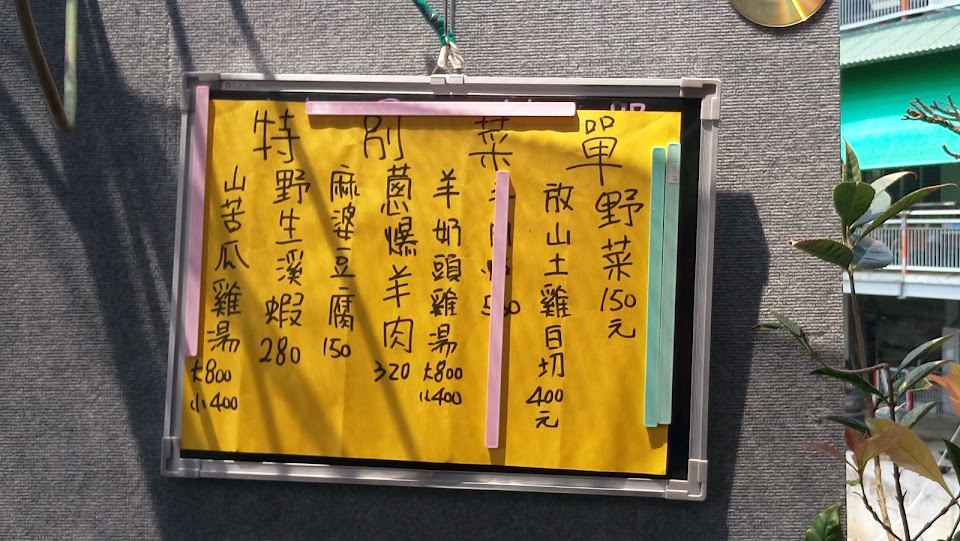 特別菜單
野菜150元
放山土雞白切400元
羊奶頭雞湯大800小400
蔥爆羊肉320
麻婆豆腐150
野生溪蝦280
山苦瓜雞湯大800小400